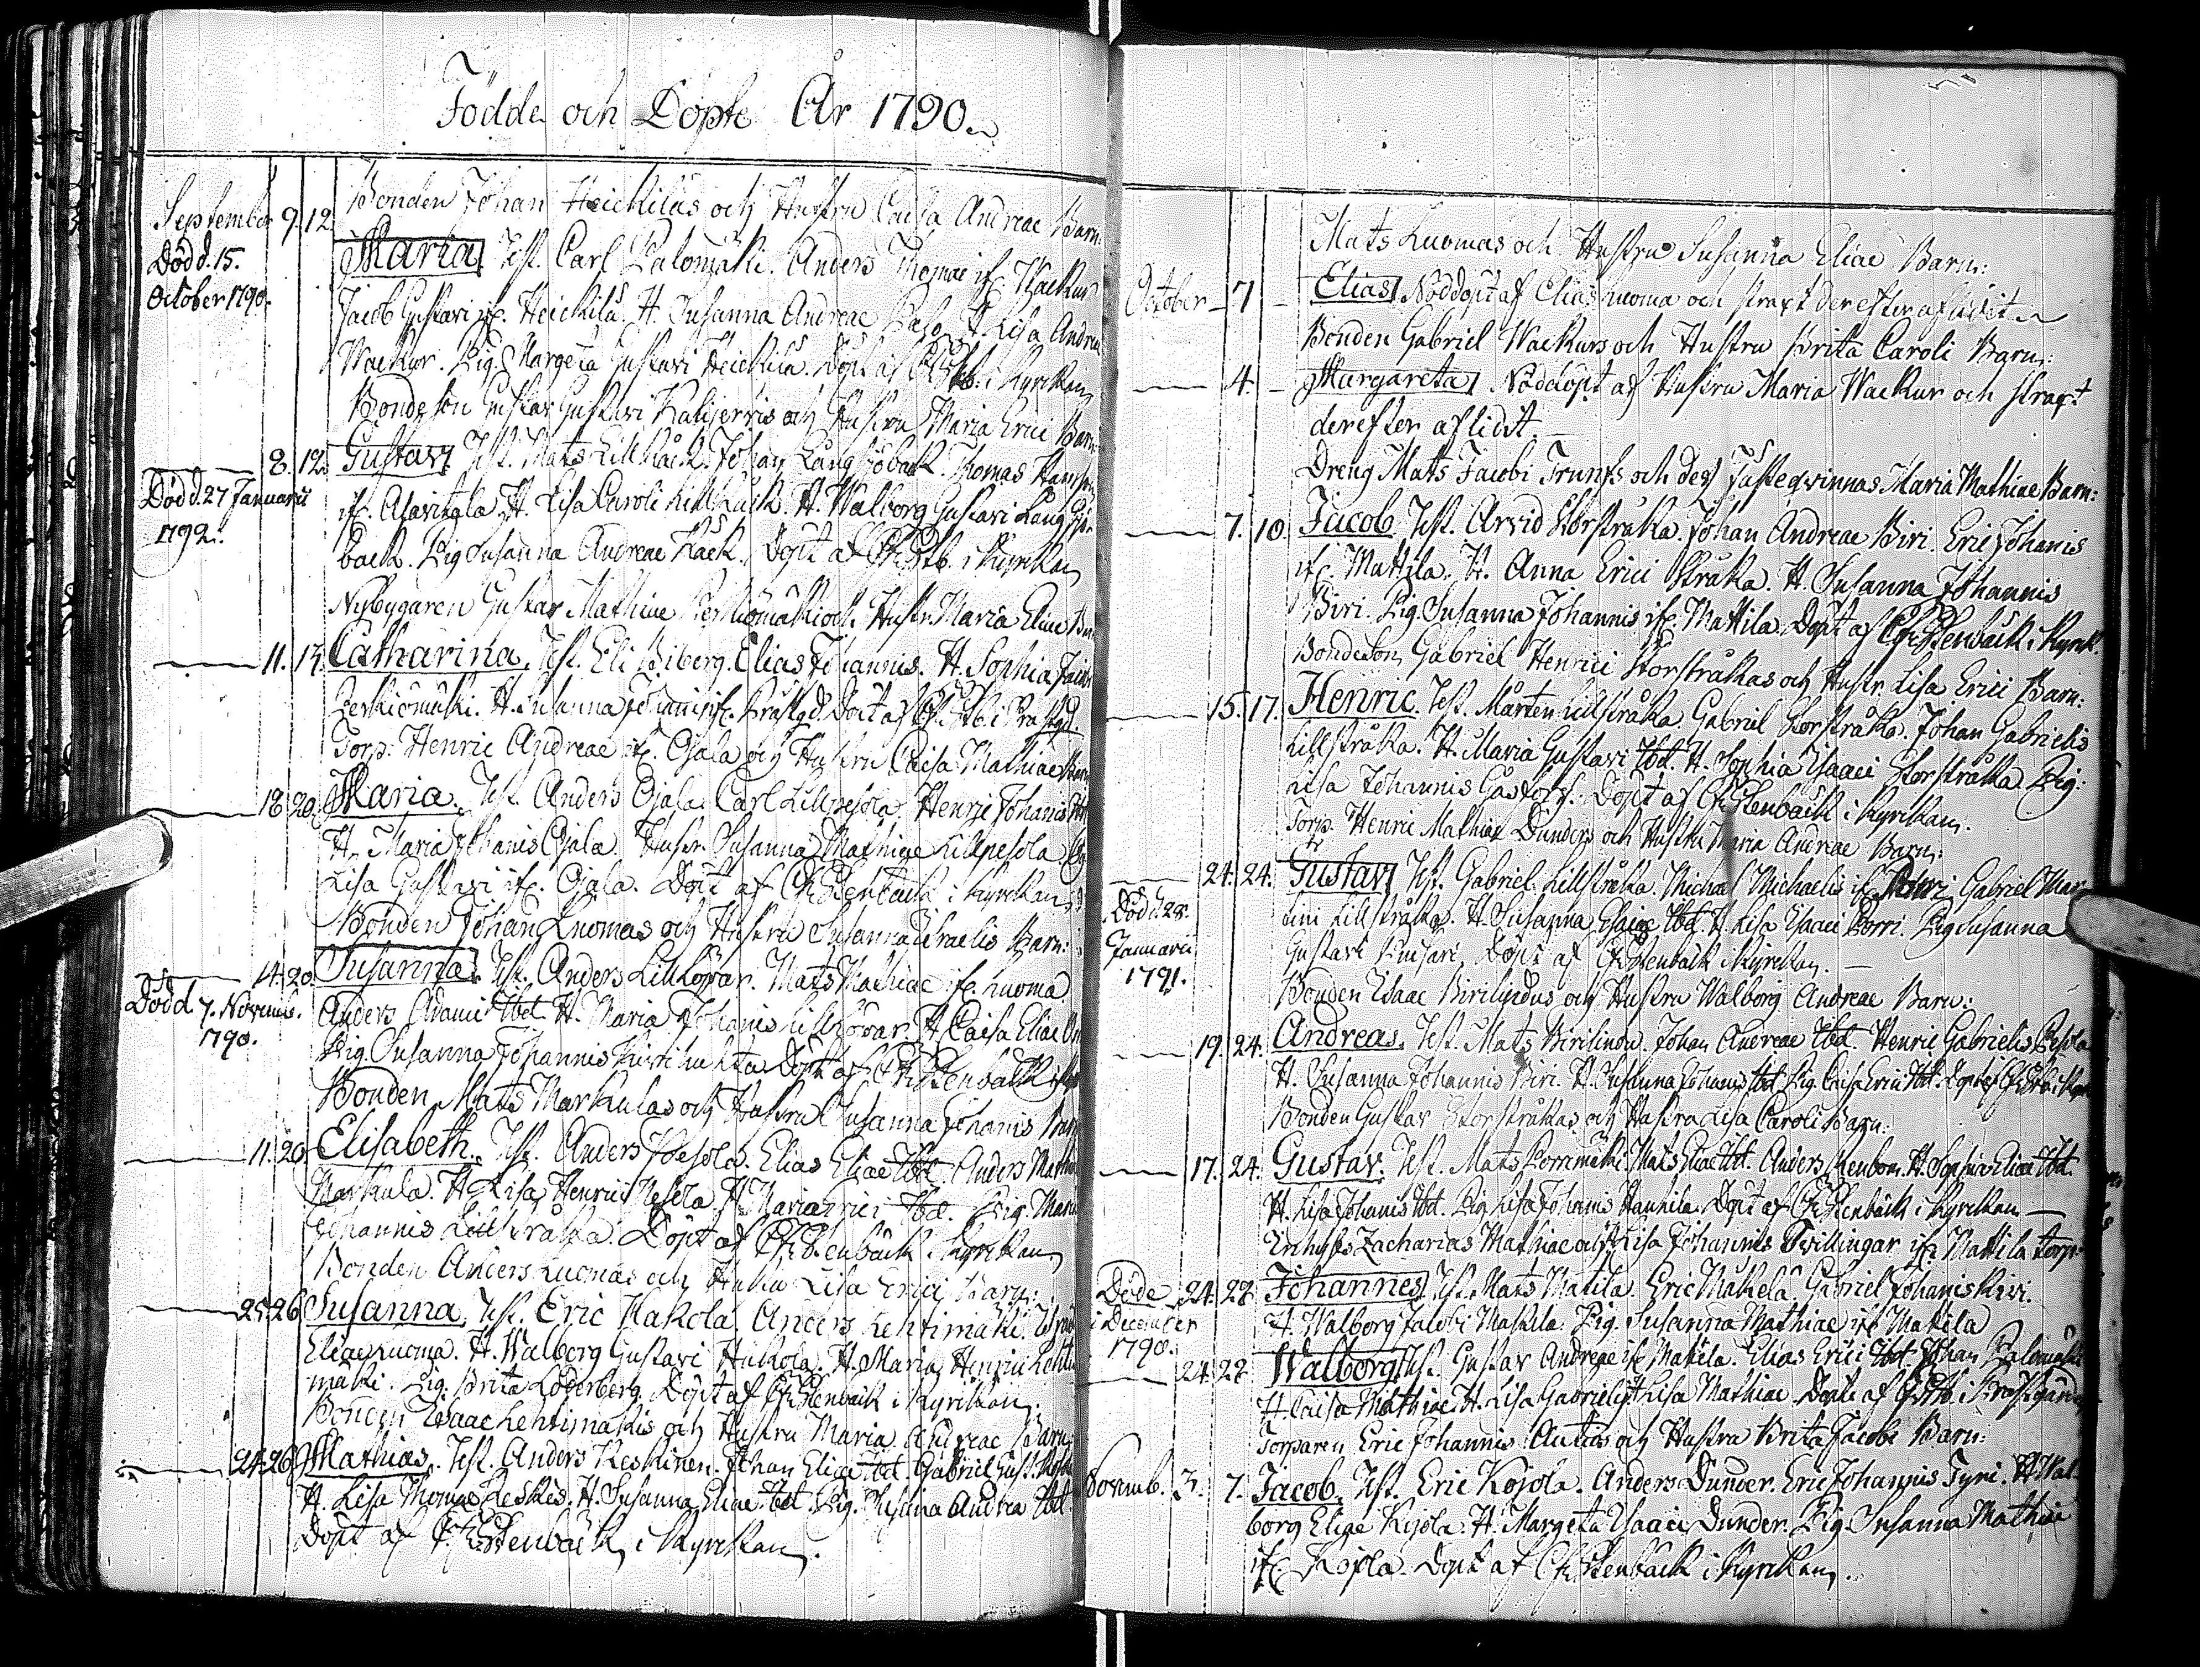 Födde och Döpte År 1790.
Bonden Johan Heickilas och Hustru Caisa Andreae Barn:
September 9. 12. Maria Test. Carl Palomäki. Anders Thomae if. Wackur
Död d. 15. October 1790.
Jacob Gustavi if. Heickilä. H. Susanna Andreae Palo. H. Lisa Andreae
Wackur. Pig. Margeta Gustavi Heickilä. Döpt af i Kyrckan
Bondeson Gustav Gustavi Kalijervis och Hustru Maria Erici Barn:
8. 12. Gustav Test. Mats Lillkåck. Johan Långsjöback. Thomas
Död d. 27 Januarii 1792.
if. Asavitala. H. Lisa Caroli Lillkåck. H. Walborg Gustavi Långsjö
back. Pig Susanna Andreae Kåck. Döpt af i Kyrckan
Nybygaren Gustav Mathiae och Hustr. Maria Eliae
11. 13. Catharina. Test. Eli Biberg. Elias Johannis. H. Sophia
H. Susanna Johannis if. Prästgd. Döpt af i Prästgd.
Torp. Henric Andreae if. Ojala och Hustru Caisa Mathiae
18. 20. Maria. Test. Anders Ojala. Carl Lillpesola. Henric Johanis
H. Maria Johanis Ojala. Hustr. Susanna Mathiae Lillpesola.
Lisa Gustavi if. Ojala. Döpt af Ch. Stenbäck i Kyrckan
Bonden Johan Luomas och Hustru Susanna Israelis Barn:
14. 20. Susanna. Test. Anders Lillkövar. Mats Mathiae if. Luoma
Död d. 7. Novemb. 1790.
Anders Adami Ibd. H. Maria Johanis Lillkövar. H. Caisa Eliae
Pig. Susanna Johannis Döpt af Ch. Stenbäck i
Bonden Mats Markulas och Hustru Susanna Johanis
11. 20. Elisabeth. Test. Anders Pesola. Elias Eliae Ibd. Anders
Markula. H. Lisa Henrici Pesola. H. Maria Erici Ibd. Pig. Maria
Johannis Lillstråka. Döpt af Ch. Stenbäck i Kyrckan
Bonden Anders Luomas och Hustru Lisa Erici Barn:
25. 26. Susanna. Test. Eric Hakola. Anders Lehtimäki.
Eliae Luoma. H. Walborg Gustavi Hakola. H. Maria Henrici Lehti
mäki. Pig. Brita Lögerberg. Döpt af Ch. Stenbäck i Kyrckan.
Bonden Isaac Lehtimäkis och Hustru Maria Andreae Barn
24. 26. Mathias. Test. Anders Keskinen. Johan Eliae Ibd. Gabriel Gust.
H. Lisa Thomae Keskis. H. Susanna Eliae Ibd. Pig. Susana Andrea Ibd.
Döpt af Ch. Stenbäck i Kyrckan.
Mats Luomas och Hustru Susanna Eliae Barn:
October 7 Elias Nöddöpt af Elias Luoma och straxt derefter aflidit
Bonden Gabriel Wackurs och Hustru Brita Caroli Barn:
4. Margareta Nöddöpt af Hustru Maria Wackur och straxt
derefter aflidit.
Dreng Mats Jacobi Trumfs och dess Fästeqvinnas Maria Mathiae Barn:
7. 10. Jacob. Test. Arvid Storstråka. Johan Andreae Biri. Eric Johanis
if. Mattila. H. Anna Erici Stråka. H. Susanna Johannis
Biri. Pig. Susanna Johannis if. Mattila. Döpt af Ch. Stenbäck i Kyrck.
Bondeson Gabriel Henrici Storstråkas och Hustr. Lisa Erici Barn:
15. 17. Henric. Test. Mårten Lillstråka. Gabriel Storstråka. Johan Gabrielis
Lillstråka. H. Maria Gustavi Ibd. H. Sophia Isaaci Storstråka. Pig:
Lisa Johannis Döpt af Ch. Stenbäck i Kyrckan.
Torp. Henric Mathiae Dunders och Hustru Maria Andreae Barn:
24. 24. Gustav Test. Gabriel Lillstråka. Michael Michaelis if. Gabriel Mar
Död d. 28. Januarii 1791.
tini Lillstråka. H. Susanna Ibd. H. Lisa Isaaci Porri. Pig Susanna
Gustavi Döpt af Ch. Stenbäck i Kyrckan.
Bonden Isaac Birilindus och Hustru Walborg Andreae Barn:
19. 24. Andreas. Test. Mats Birilindu. Johan Andreae Ibd. Henric Gabrielis Pesola
H. Susanna Johannis Biri. H. Susanna Johanis Ibd. Pig. Caisa Erici Ibd. Döpt af
Bonden Gustav Storstråkas och Hustru Lisa Caroli Barn:
17. 24. Gustav. Test. Mats Porrimäki. Mats Eliae Ibd. Anders Renbom. H. Sophia Eliae Ibd.
H. Lisa Johanis Ibd. Pig Lisa Johannis Hannila. Döpt af Ch. Stenbäck i Kyrckan
Zacharias Mathiae och Lisa Johannis Tvillingar if. Mattila torp
Döde i December 1790.
24. 28. Johannes Test. Mats Mattila. Eric Mäkelä. Gabriel Johanis Kivi.
H. Walborg Jacobi Mattila. Pig. Susanna Mathiae if. Mattila
24. 28. Walborg Test. Gustav Andreae if. Mattila. Elias Erici Ibd. Johan Palomäki
H. Caisa Mathiae. H. Lisa Gabrielis. H. Lisa Mathiae. Döpte af i Prästgård
Torparen Eric Johannis Anttas och Hustru Brita Jacobi Barn:
Novemb. 3. 7. Jacob. Test. Eric Kojola. Anders Dunder. Eric Johannis Tyni. H. Wal
borg Eliae Kojola. H. Margeta Isaaci Dunder. Pig. Susanna Mathiae
if. Kojola. Döpt af Ch. Stenbäck i Kyrckan.